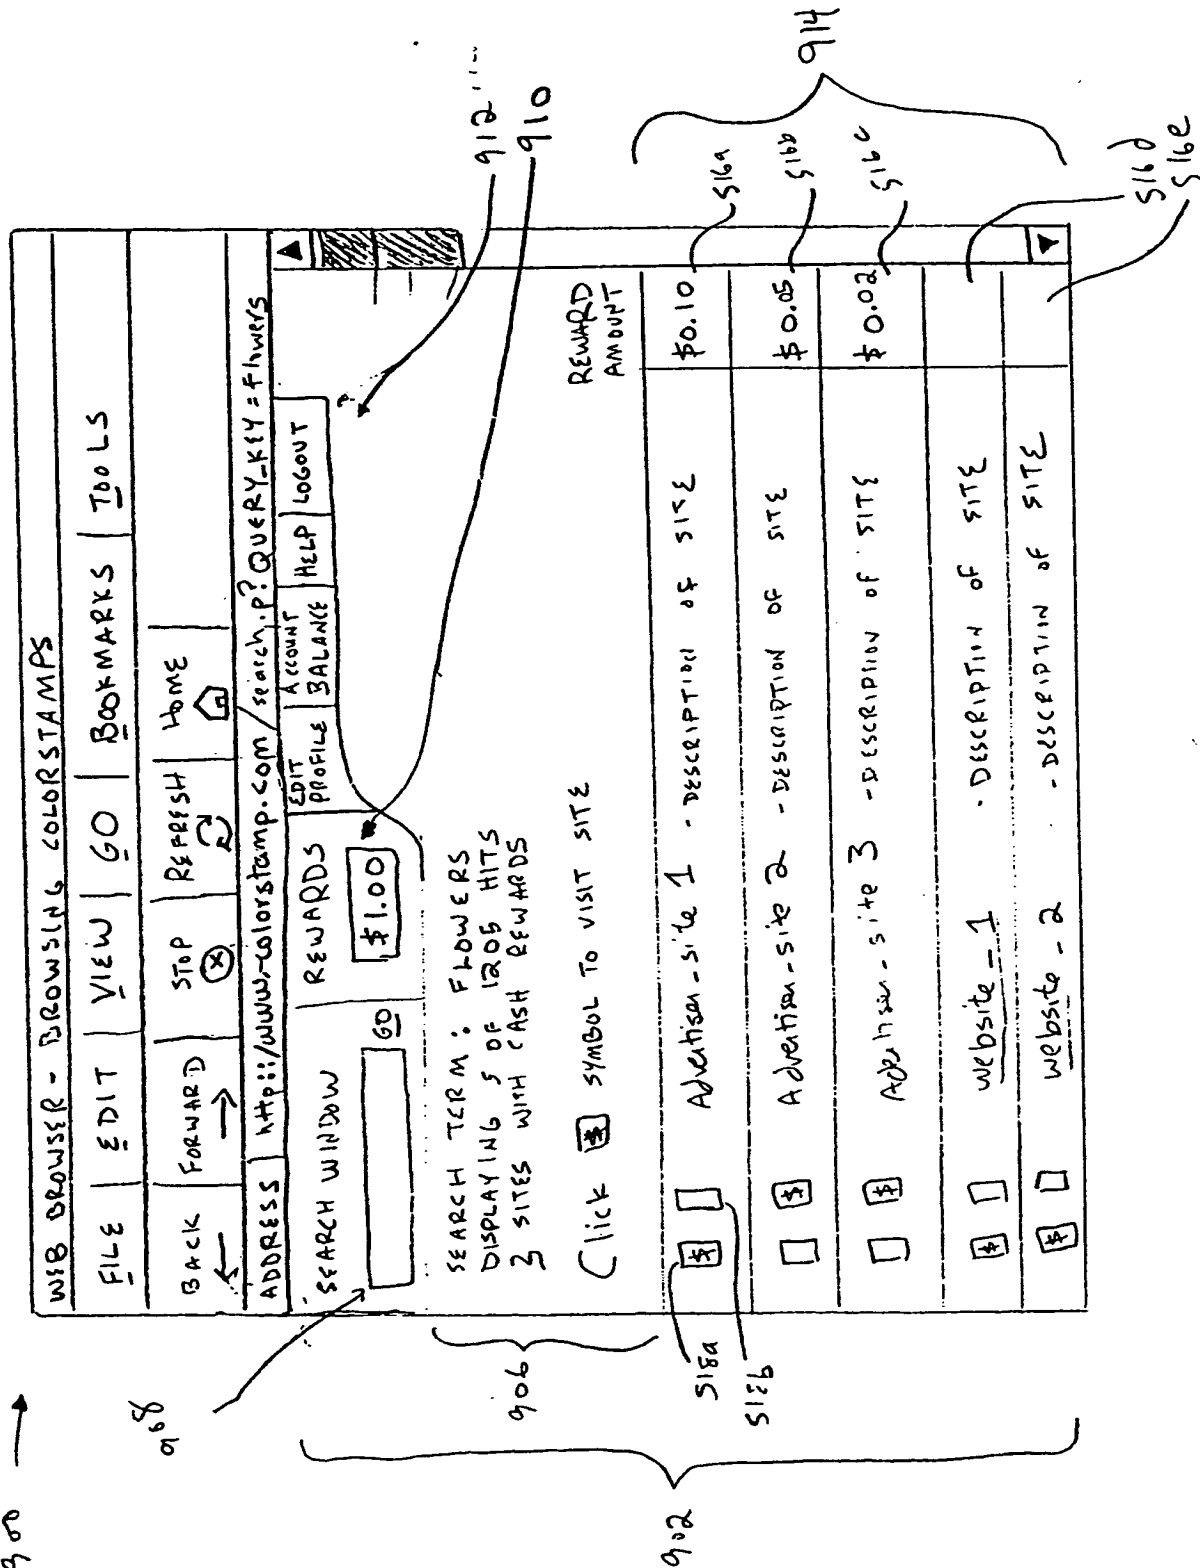 900
WEB BROWSER - BROWSING COLORSTAMPS
FILE EDIT VIEW GO BOOKMARKS TOOLS
BACK FORWARD STOP REFRESH HOME
ADDRESS http://www.colorstamp.com/search.p?QUERY_KEY=flowers
SEARCH WINDOW REWARDS EDIT PROFILE ACCOUNT BALANCE HELP LOGOUT
GO $1.00
908
912
910
SEARCH TERM: FLOWERS
DISPLAYING 5 OF 1205 HITS
3 SITES WITH CASH REWARDS
906
Click $ SYMBOL TO VISIT SITE
REWARD
AMOUNT
$ Advertiser-site 1 - DESCRIPTION OF SITE $0.10
$ Advertiser-site 2 - DESCRIPTION OF SITE $0.05
$ Advertiser-site 3 - DESCRIPTION OF SITE $0.02
$ website_1 - DESCRIPTION of SITE
$ website_2 - DESCRIPTION of SITE
518a
518b
902
516a
516b
516c
516d
516e
914